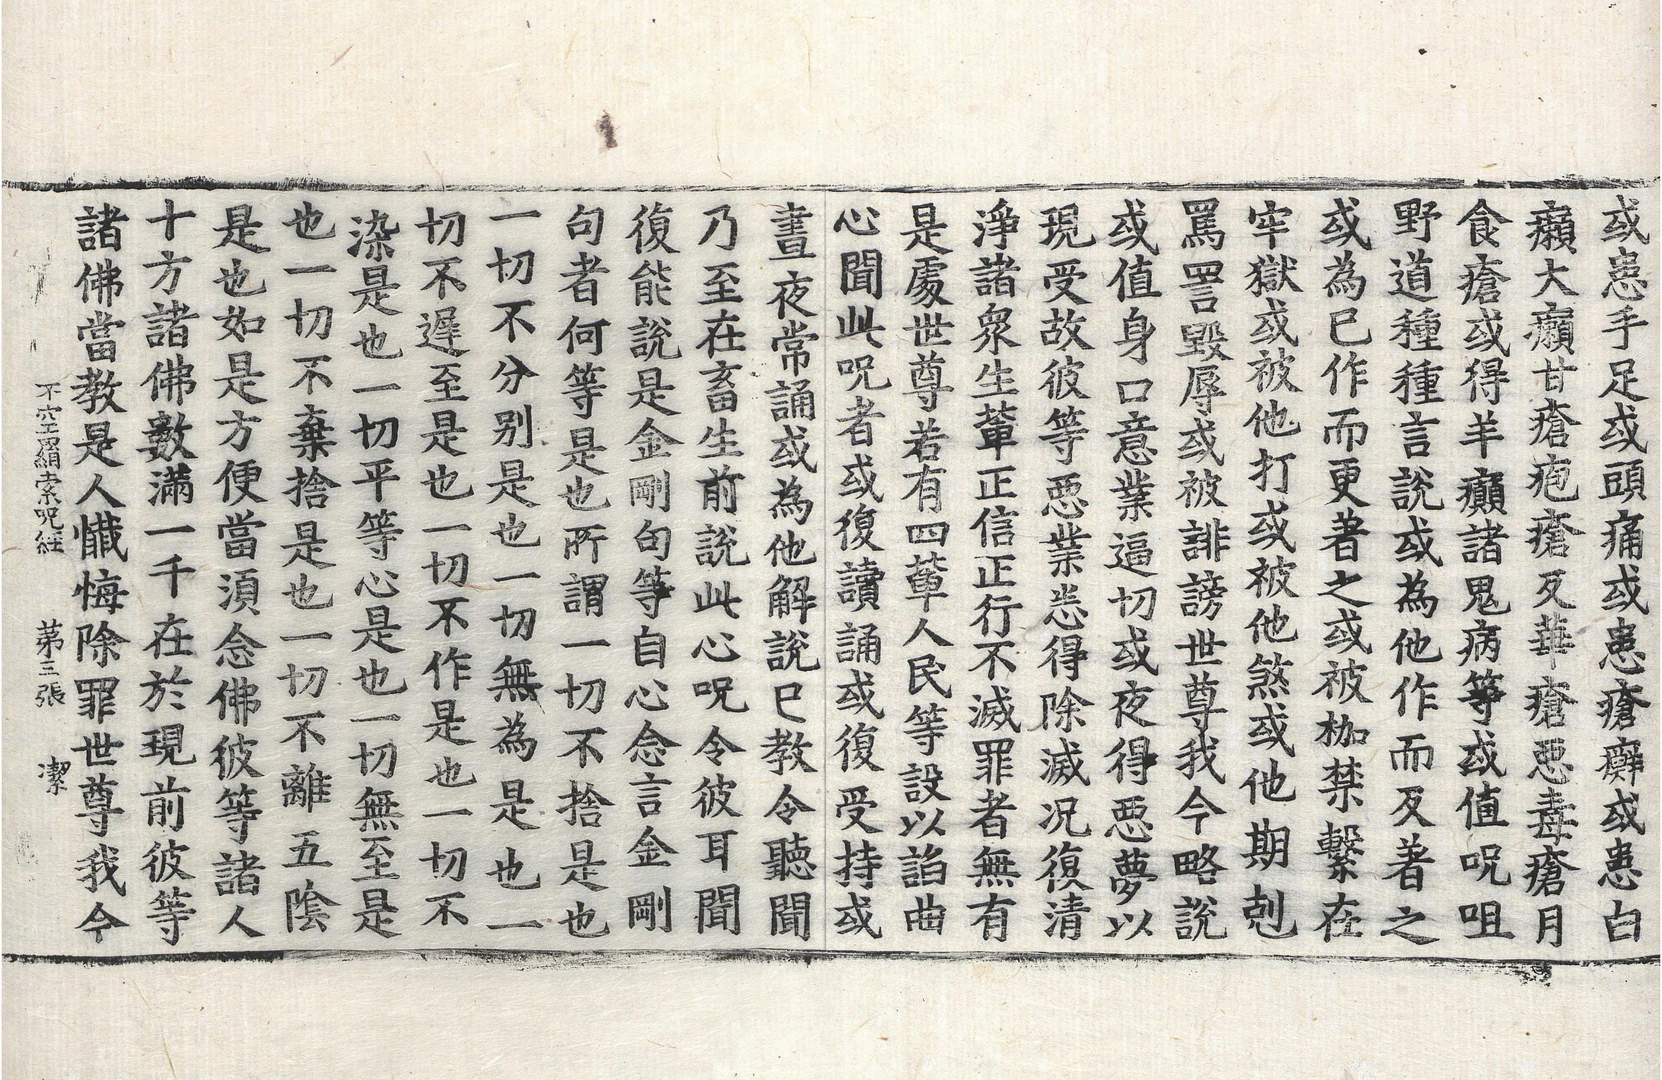 或患手足或頭痛或患瘡癬或患白
癩大癩甘瘡疱瘡反華瘡惡毒瘡月
食瘡或得羊癲諸鬼病等或值呪咀
野道種種言說或為他作而反著之
或為已作而更著之或被枷禁繫在
牢獄或被他打或被他煞或他期剋
罵詈毀辱或被誹謗世尊我今略說
或值身口意業逼切或夜得惡夢以
現受故彼等惡業悉得除滅況復清
淨諸衆生輩正信正行不滅罪者無有
是處世尊若有四輩人民等設以諂曲
心聞此呪者或復讀誦或復受持或
晝夜常誦或為他解說已教令聽聞
乃至在畜生前說此心呪令彼耳聞
復能說是金剛句等自心念言金剛
句者何等是也所謂一切不捨是也
一切不分別是也一切無為是也一
切不遲至是也一切不作是也一切不
染是也一切平等心是也一切無至是
也一切不棄捨是也一切不離五陰
是也如是方便當須念佛彼等諸人
十方諸佛數滿一千在於現前彼等
諸佛當教是人懺悔除罪世尊我今
不空羂索呪經 苐三張 潔